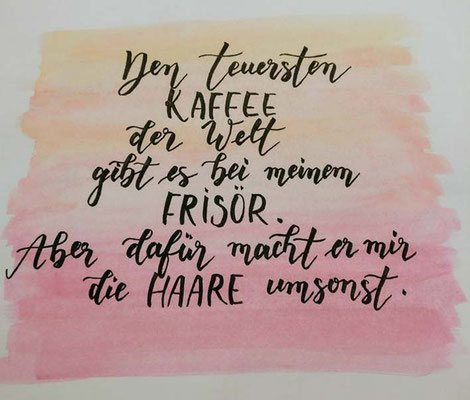 Den teuersten
KAFFEE
der Welt
gibt es bei meinem
FRISÖR.
Aber dafür macht er mir
die HAARE umsonst.